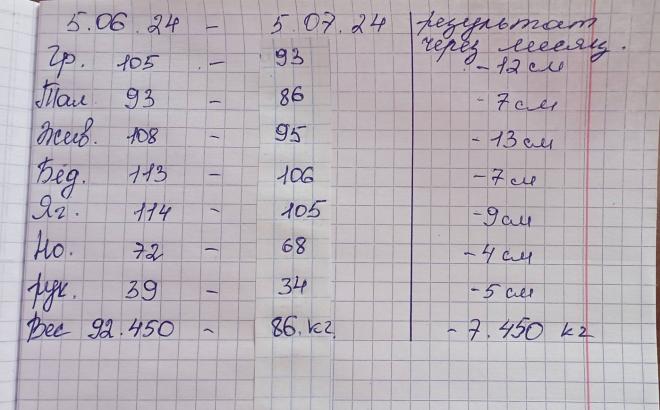 5.06.24 - 5.07.24 результат
через месяц.
Гр. 105 - 93 - 12 см
Тал 93 - 86 - 7 см
Жив. 108 - 95 - 13 см
Бёд. 113 - 106 - 7 см
Яг. 114 - 105 - 9 см
Но. 72 - 68 - 4 см
рук. 39 - 34 - 5 см
Вес 92.450 - 86.кг. - 7.450 кг